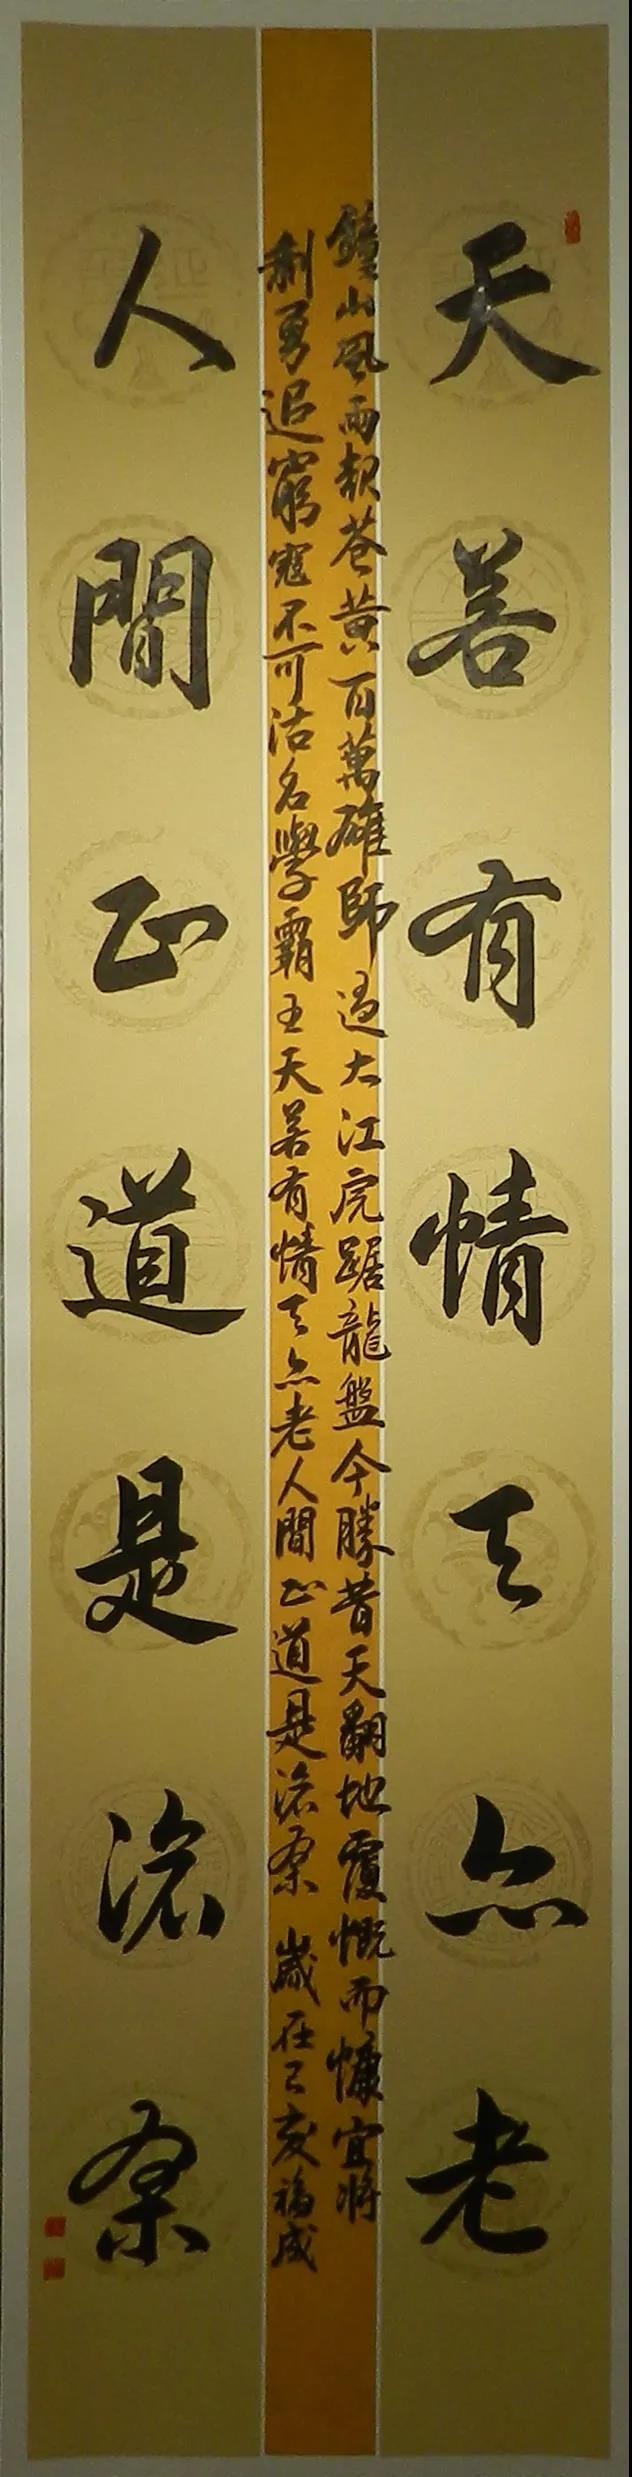 天若有情天亦老
人間正道是滄桑
鐘山風雨起蒼黃百萬雄師過大江虎踞龍盤今勝昔天翻地覆慨而慷宜將
剩勇追窮寇不可沽名學霸王天若有情天亦老人間正道是滄桑 歲在己亥福成